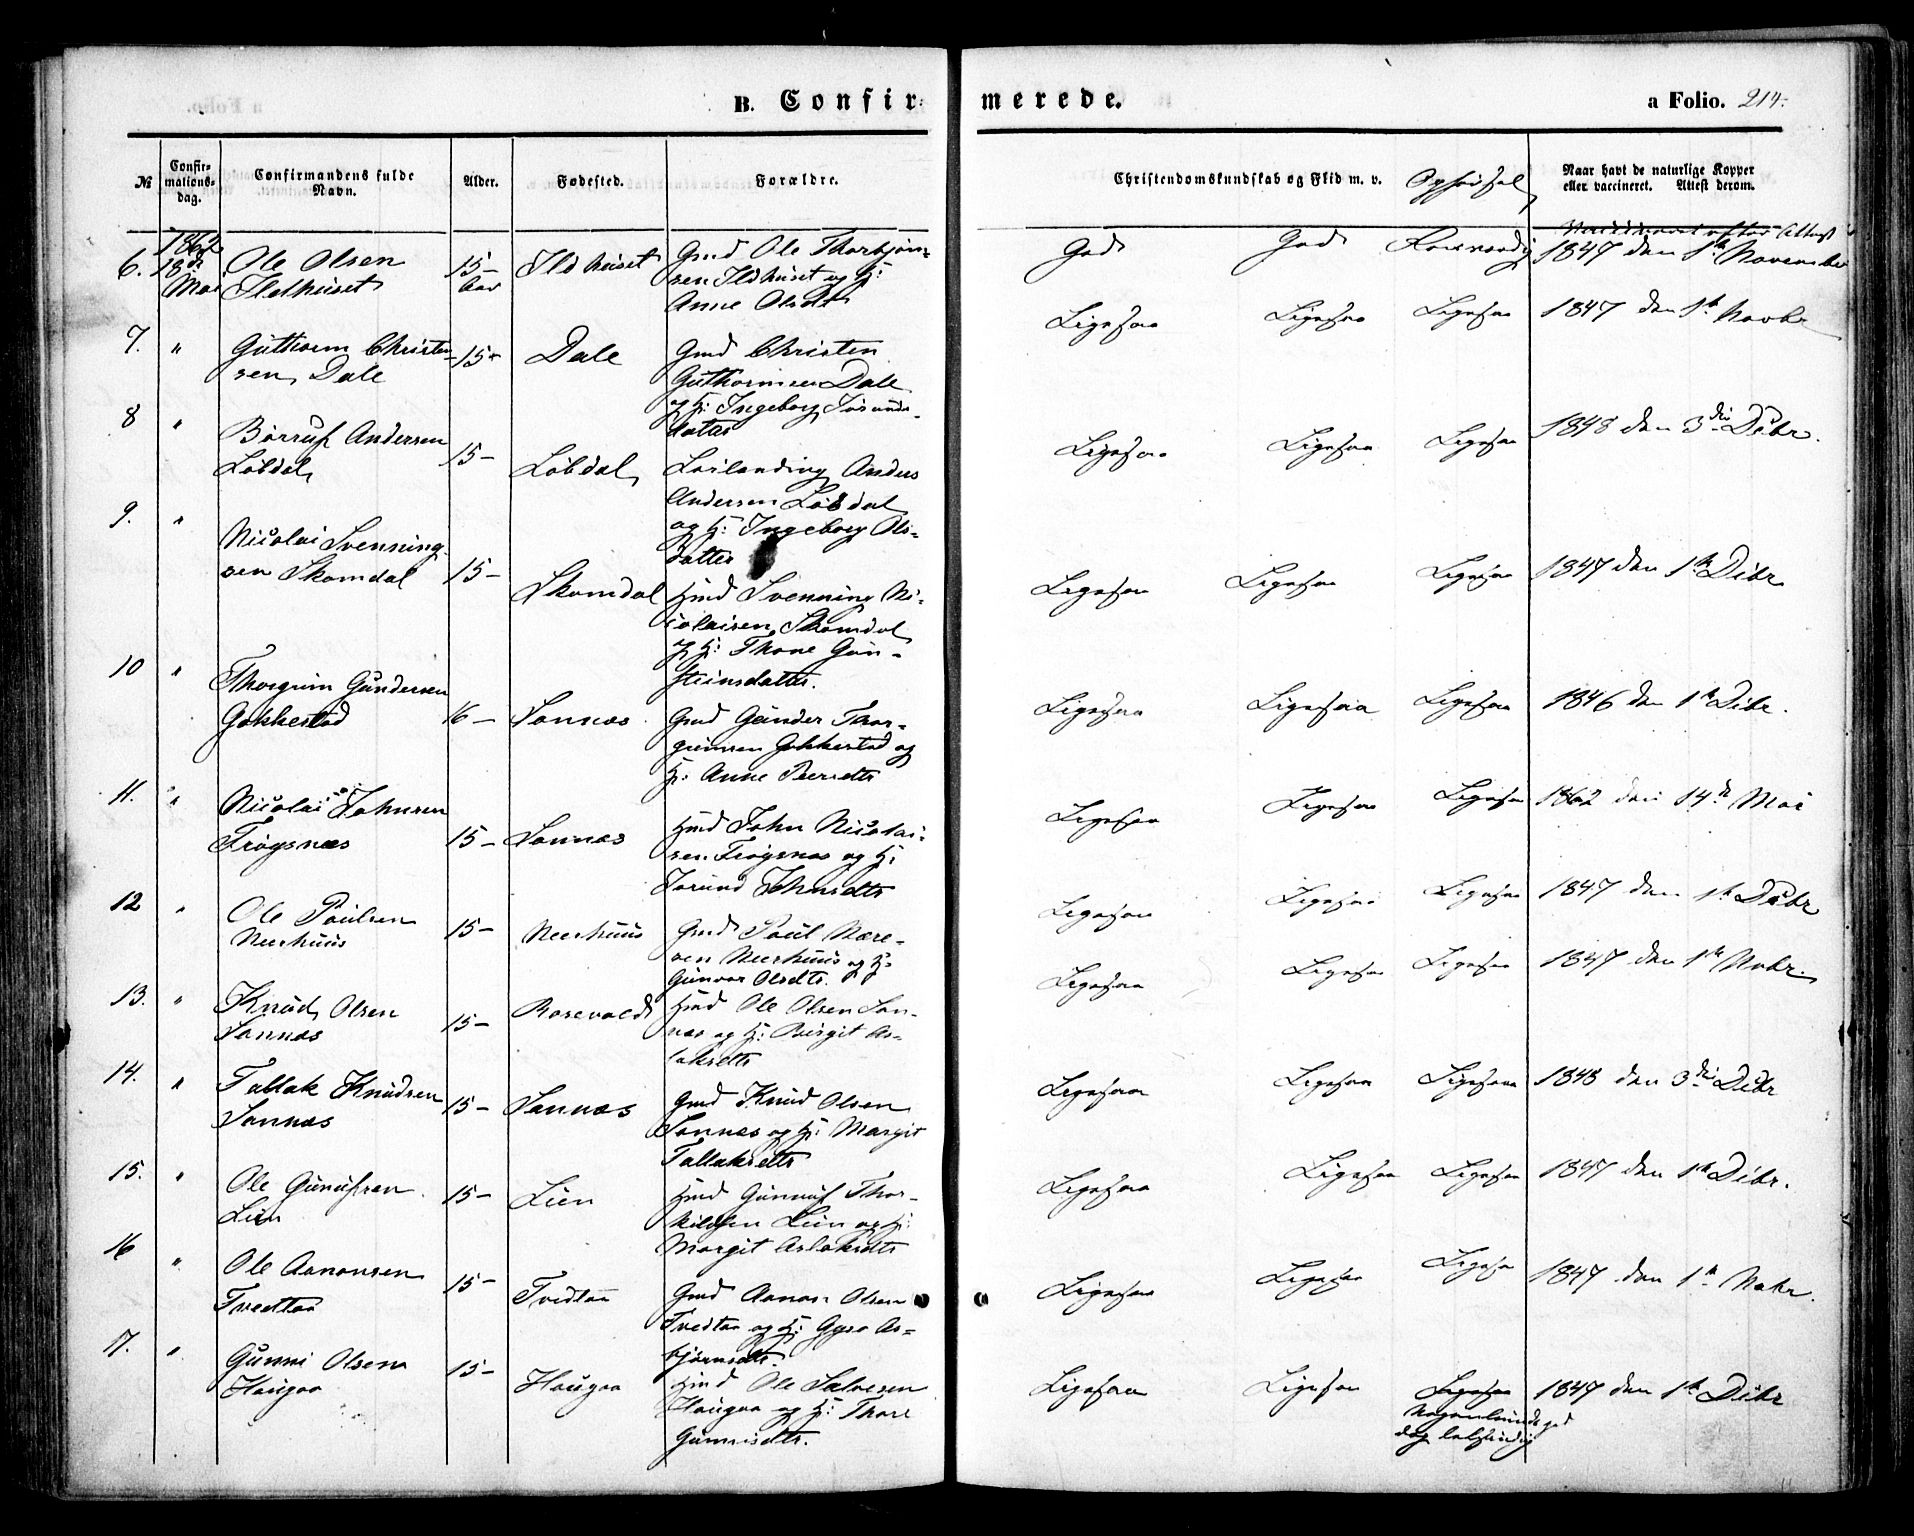 B. Confir= merede.
a Folio. 214.
№
Confir-
mations-
dag.
Confirmandens fulde
Navn.
Alder.
Fødested.
Forældre.
Christendomskundskab og Flid m. v.
Opførsel
Naar havt de naturlige Kopper
eller vaccineret. Attest derom.
6. 1862 18de Mai
Ole Olsen
Ildhuset
15- Aar
Ildhuset
Gmd Ole Thorbjørn-
sen Ildhuset og H:
Anne Olsdtr
God God
1847 den 1ste November
7. "
Guthorm Christen-
sen Dale
15-
Dale
Gmd Christen
Guthormsen Dale
og H: Ingeborg
datter
Ligesaa Ligesaa Ligesaa
1847 den 1ste Novbr
8 "
Børruf Andersen
Løbdal
15-
Løbdal
Anders
Andersen Løbdal
og H: Ingeborg Ols-
datter
Ligesaa Ligesaa Ligesaa
1848 den 3die Debr.
9. "
Nicolai Svenning-
sen Skomdal
15-
Skomdal
Hmd Svenning Ni-
colaisen Skomdal
og H: Thone Gun-
steinsdatter.
Ligesaa Ligesaa Ligesaa
1847 den 1ste Debr
10 "
Thorgrim Gundersen
Gokkestad
16-
Sannæs
Gmd Gunder Thor-
grimsen Gokkestad og
H: Anne Peersdtr
Ligesaa Ligesaa Ligesaa
1846 den 1ste Debr.
11. "
Nicolai Johnsen
Trøgsnæs
15-
Sannæs
Hmd John Nicolai-
sen Trøgsnæs og H:
Jorund
Ligesaa Ligesaa Ligesaa
1862 den 14de Mai
12 "
Ole Poulsen
Neerhuus
15-
Neerhuus
Gmd Poul Nære-
sen Neerhuus og H:
Gunvor Olsdtr.
Ligesaa Ligesaa Ligesaa
1847 den 1ste Debr
13. "
Knud Olsen
Sannæs
15-
Rosevold
Hmd Ole Olsen San-
næs og H: Birgit As-
laksdtr
Ligesaa Ligesaa Ligesaa
1847 den 1ste Nobr.
14. "
Tallak Knudsen
Sannæs
15-
Sannæs
Gmd Knud Olsen
Sannæs og H: Margit
Tallaksdtr
Ligesaa Ligesaa Ligesaa
1848 den 3die Debr
15. "
Ole Gunufsen
Lien
15-
Lien
Hmd Gunnuf Thor-
kildsen Lien og H:
Margit Aslaksdtr
Ligesaa Ligesaa Ligesaa
1847 den 1ste Debr.
16 "
Ole Aanonsen
Tvedtaa
15-
Tvedtaa
Gmd Aanon Olsen
Tvedtaa og H: Gyro As-
bjørnsdtr.
Ligesaa Ligesaa Ligesaa
1847 den 1ste Nobr.
17. "
Gunni Olsen
Haugaa
15-
Haugaa
Hmd Ole Salvesen
Haugaa og H: Thore
Gunnisdtr.
Ligesaa Ligesaa Ligesaa
1847 den 1ste Debr